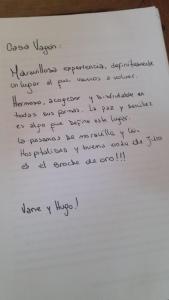 Casa Vagón:
Maravillosa experiencia, definitivamente
un lugar al que vamos a volver.
Hermoso, acogedor y disfrutable en
todas sus formas. La paz y
es algo que define este lugar.
La pasamos de maravilla y la
Hospitalidad y buena onda de Julio
es el Broche de oro!!!
Vane y Hugo!